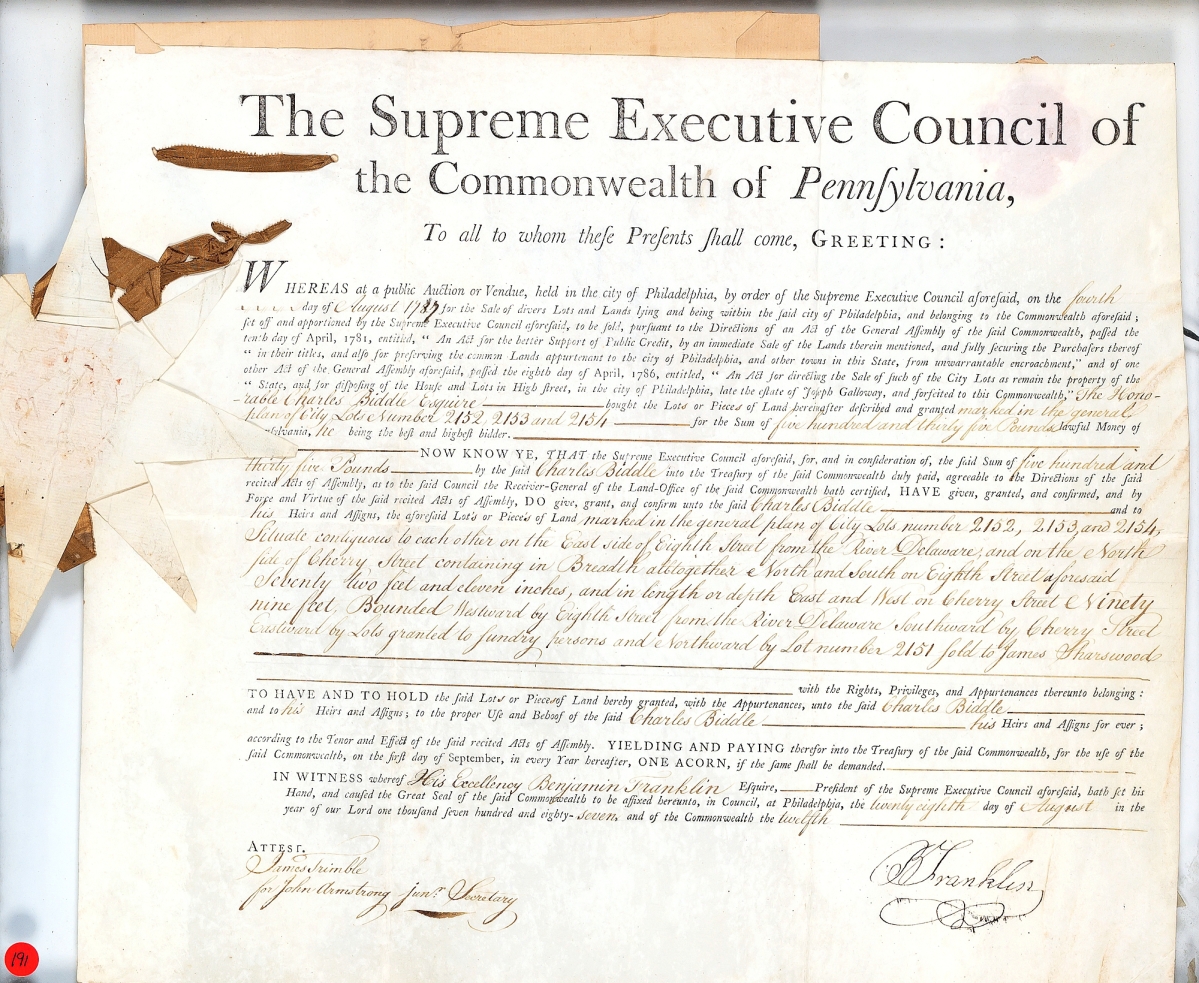 The Supreme Executive Council of
the Commonwealth of Pennſylvania,
To all to whom theſe Preſents ſhall come, GREETING :
WHEREAS at a public Auction or Vendue, held in the city of Philadelphia, by order of the Supreme Executive Council aforeſaid, on the fourth
day of August 1787, for the Sale of divers Lots and Lands lying and being within the ſaid city of Philadelphia, and belonging to the Commonwealth aforeſaid ;
ſet off and apportioned by the Supreme Executive Council aforeſaid, to be ſold, purſuant to the Directions of an Act of the General Aſſembly of the ſaid Commonwealth, paſſed the
tenth day of April, 1781, entitled, “ An Act for the better Support of Public Credit, by an immediate Sale of the Lands therein mentioned, and fully ſecuring the Purchaſers thereof
“ in their titles, and alſo for preſerving the common Lands appurtenant to the city of Philadelphia, and other towns in this State, from unwarrantable encroachment,” and of one
other Act of the General Aſſembly aforeſaid, paſſed the eighth day of April, 1786, entitled, “ An Act for directing the Sale of ſuch of the City Lots as remain the property of the
“ State, and for diſpoſing of the Houſe and Lots in High ſtreet, in the city of Philadelphia, late the eſtate of Joſeph Galloway, and forfeited to this Commonwealth,” The Hono-
rable Charles Biddle Esquire bought the Lots or Pieces of Land hereinafter deſcribed and granted marked in the general
plan of City Lots Number 2152, 2153 and 2154 for the Sum of five hundred and thirty five Pounds lawful Money of
ſylvania, he being the beſt and higheſt bidder.
NOW KNOW YE, THAT the Supreme Executive Council aforeſaid, for, and in conſideration of, the ſaid Sum of five hundred and
thirty five Pounds by the ſaid Charles Biddle into the Treaſury of the ſaid Commonwealth duly paid, agreeable to the Directions of the ſaid
recited Acts of Aſſembly, as to the ſaid Council the Receiver-General of the Land-Office of the ſaid Commonwealth hath certified, HAVE given, granted, and confirmed, and by
Force and Virtue of the ſaid recited Acts of Aſſembly, DO give, grant, and confirm unto the ſaid Charles Biddle and to
his Heirs and Aſſigns, the aforeſaid Lots or Pieces of Land marked in the general plan of City Lots number 2152, 2153, and 2154,
Situate contiguous to each other on the East side of Eighth Street from the River Delaware, and on the North
ſide of Cherry Street containing in Breadth altogether North and South on Eighth Street aforesaid
Seventy two feet and eleven inches, and in length or depth East and West on Cherry Street Ninety
nine feet. Bounded Westward by Eighth Street from the River Delaware Southward by Cherry Street
Eastward by Lots granted to ſundry persons and Northward by Lot number 2151 ſold to James Sharswood
with the Rights, Privileges, and Appurtenances thereunto belonging :
TO HAVE AND TO HOLD the ſaid Lots or Pieces of Land hereby granted, with the Appurtenances, unto the ſaid Charles Biddle
and to his Heirs and Aſſigns ; to the proper Uſe and Behoof of the ſaid Charles Biddle his Heirs and Aſſigns for ever ;
according to the Tenor and Effect of the ſaid recited Acts of Aſſembly. YIELDING AND PAYING therefor into the Treaſury of the ſaid Commonwealth, for the uſe of the
ſaid Commonwealth, on the firſt day of September, in every Year hereafter, ONE ACORN, if the ſame ſhall be demanded.
IN WITNESS whereof His Excellency Benjamin Franklin Eſquire, Preſident of the Supreme Executive Council aforeſaid, hath ſet his
Hand, and cauſed the Great Seal of the ſaid Commonwealth to be affixed hereunto, in Council, at Philadelphia, the twenty eighth day of August in the
year of our Lord one thouſand ſeven hundred and eighty-seven, and of the Commonwealth the twelfth
ATTEST.
James Trimble
for John Armstrong junr. Secretary
B Franklin
191